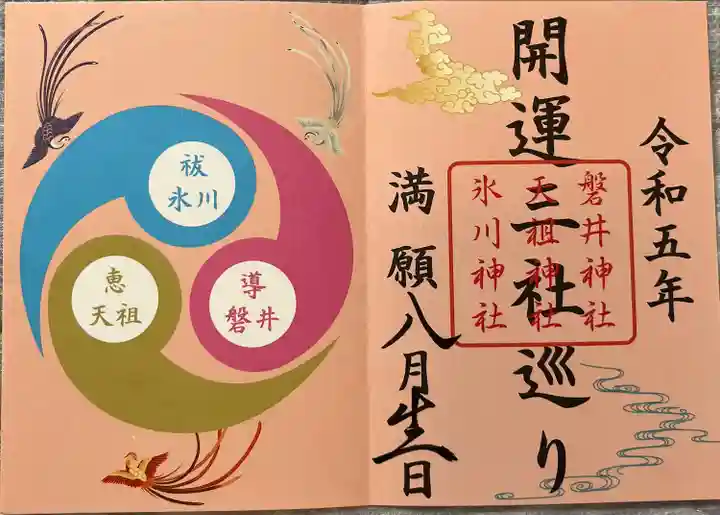 令和五年
開運三社巡り
磐井神社
天祖神社
氷川神社
満願八月日
祓
氷川
導
磐井
恵
天祖